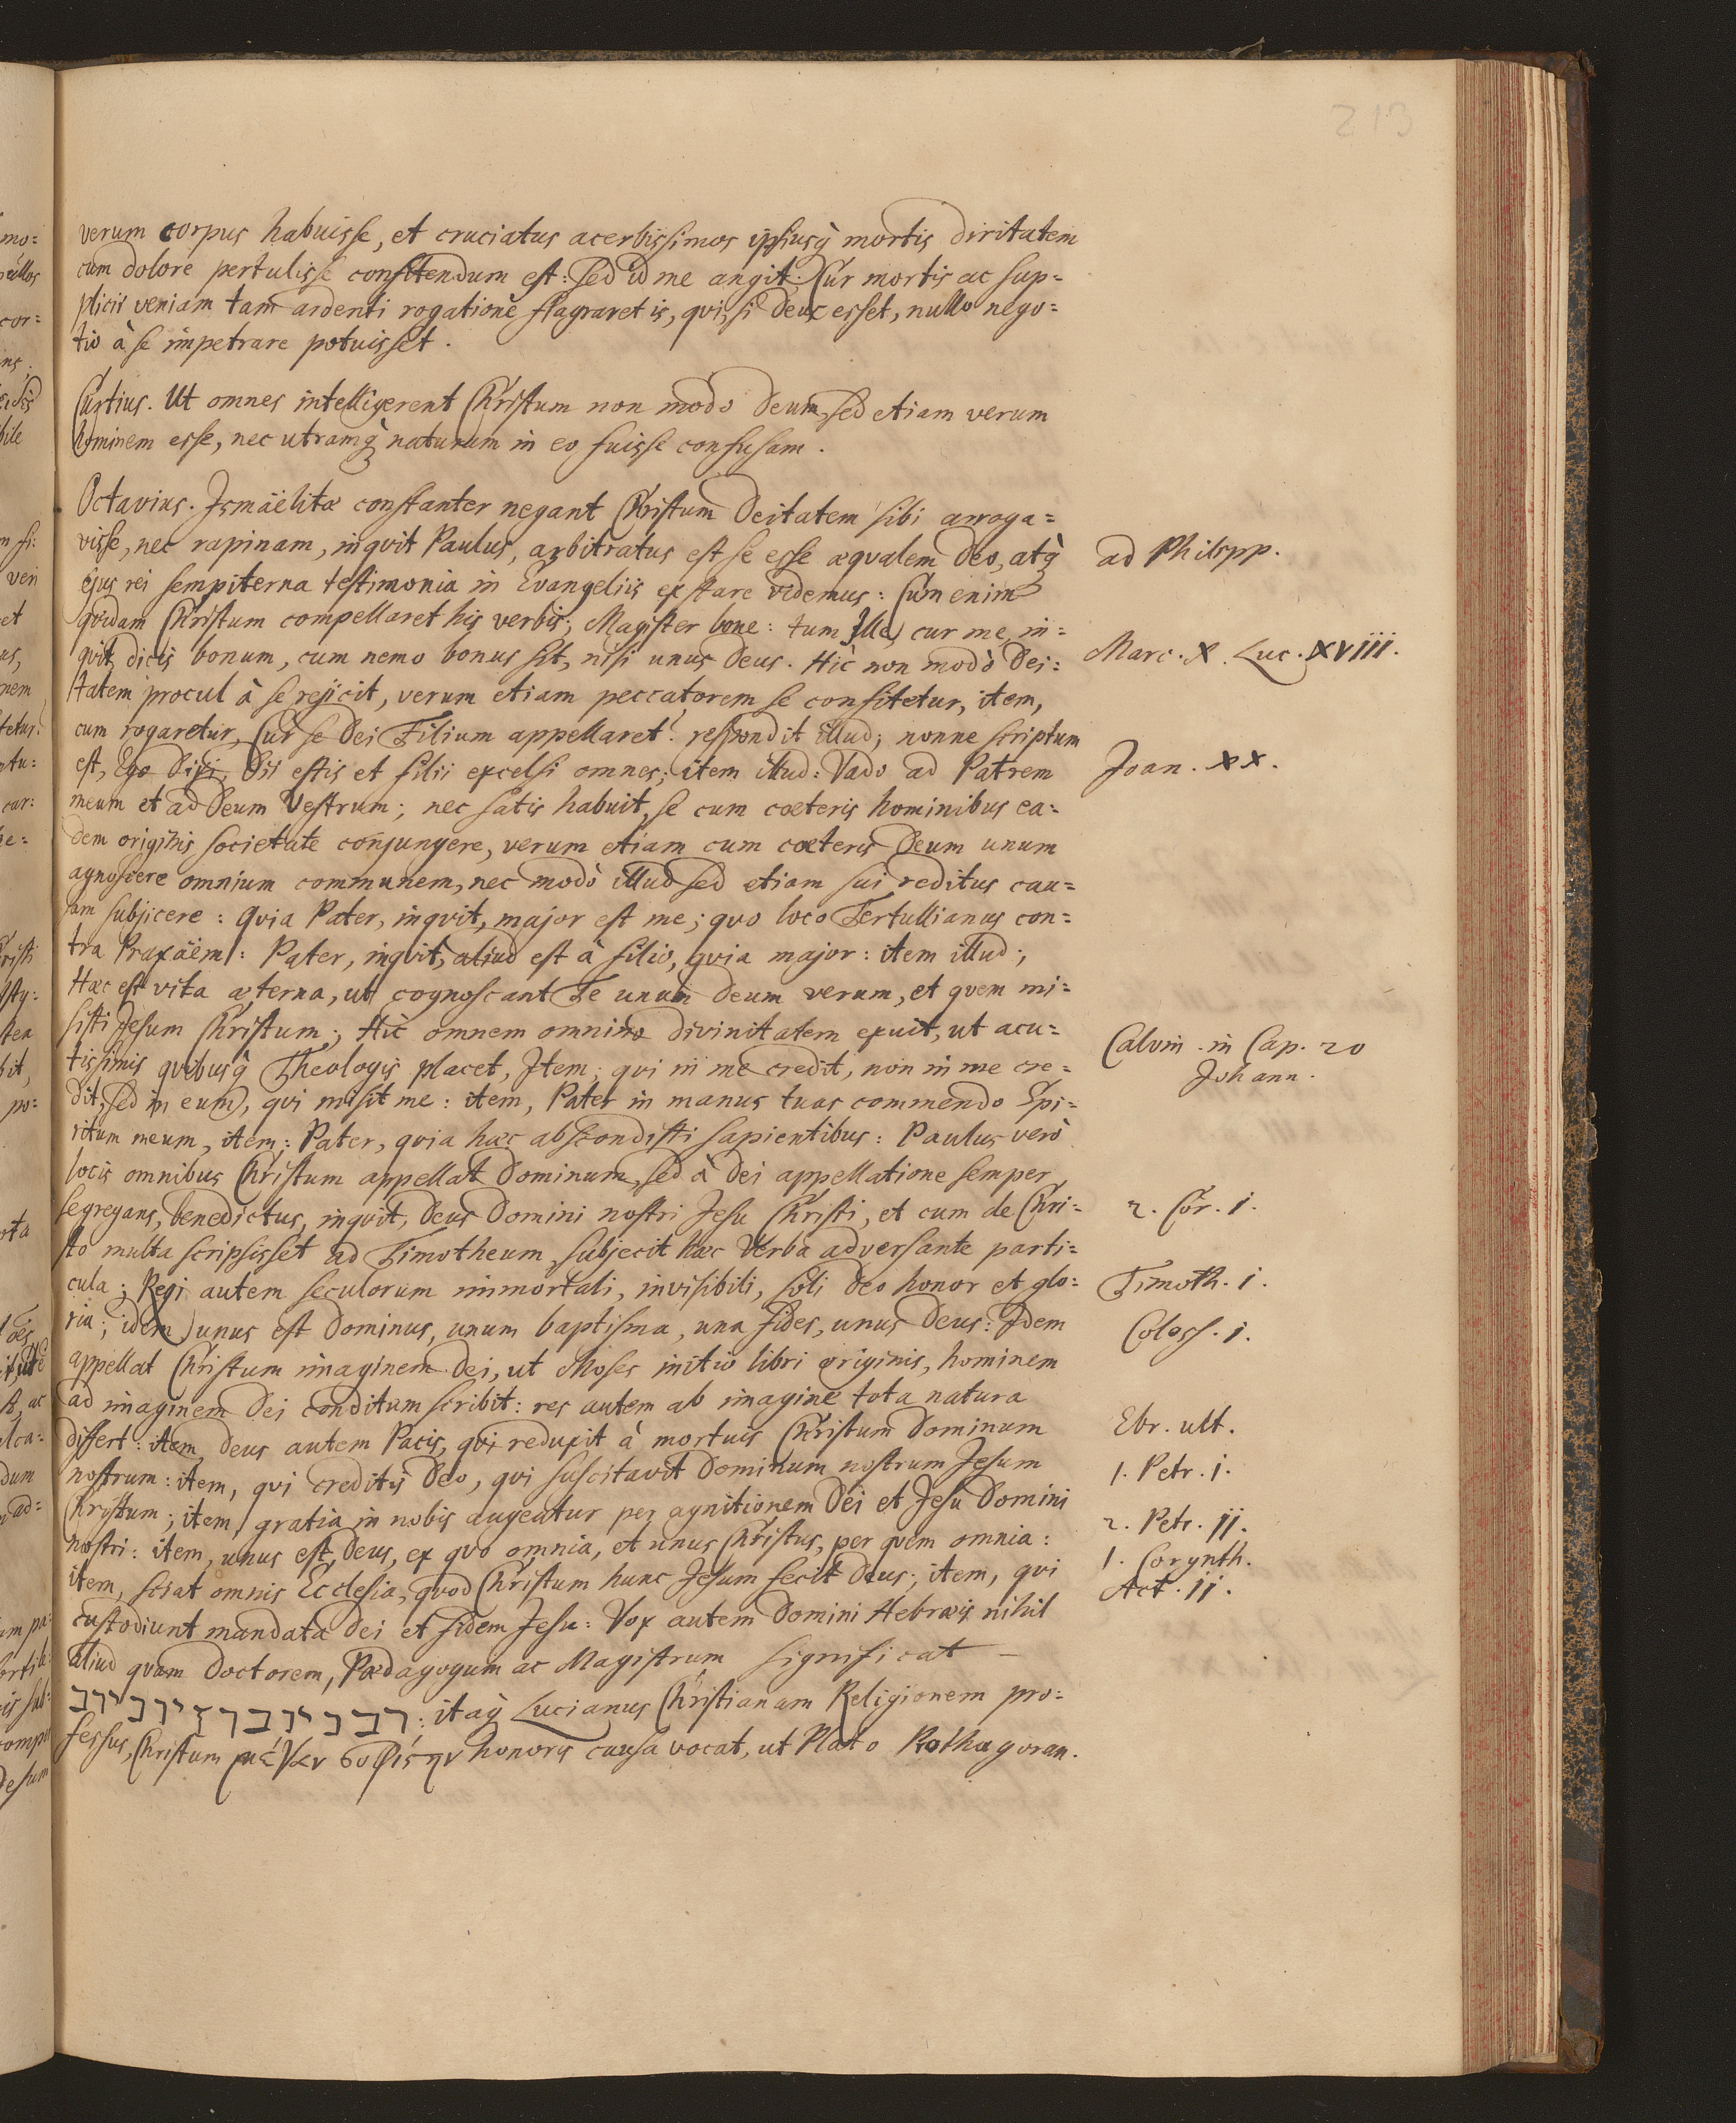 213
verum corpus habuisse, et cruciatus acerbissimos ipsiusq̀ mortis diritatem
cum dolore pertulisse confitendum est: sed id me angit. Cur mortis ac sup=
plicii veniam tam ardenti rogatione flagraret is, qvi, si deus esset, nullo nego=
tio à se impetrare potuisset.
Curtius. Ut omnes intelligerent Christum non modo deum, sed etiam verum
hominem esse, nec utramq̀ naturam in eo fuisse confusam.
Octavius. Ismäelitæ constanter negant Christum deitatem sibi arroga=
visse, nec rapinam, inqvit Paulus, arbitratus est se esse æqvalem deo, atq̀
ejus rei sempiterna testimonia in Evangeliis exstare videmus: Cum enim
qvidam Christum compellaret his verbis; Magister bone: tum Ille, cur me, in=
qvit, dicis bonum, cum nemo bonus sit, nisi unus deus. Hic non modò dei=
tatem procul à se rejicit, verum etiam peccatorem se confitetur, item,
cum rogaretur, Cur se dei Filium appellaret? respondit illud; nonne scriptum
est, Ego dixi, dii estis et filii excelsi omnes; item illud: Vado ad Patrem
meum et ad deum vestrum; nec satis habuit, se cum cæteris hominibus ea=
dem originis societate conjungere, verum etiam cum cæteris deum unum
agnoscere omnium communem, nec modò illud sed etiam sui reditus cau=
sam subjicere: qvia Pater, inqvit, major est me; qvo loco Tertullianus con=
tra Praxäem: Pater, inqvit, aliud est à filio, qvia major: item illud;
Hæc est vita æterna, ut cognoscant Te unum deum verum, et qvem mi=
sisti Jesum Christum; Hic omnem omnino divinitatem exuit, ut acu=
tissimis qvibusq̀ Theologis placet, Item; qvi in me credit, non in me cre=
dit, sed in eum, qvi misit me: item, Pater in manus tuas commendo Spi=
ritum meum, item: Pater, qvia hæc abscondisti sapientibus: Paulus verò
locis omnibus Christum appellat dominum, sed à dei appellatione semper
segregans, benedictus, inqvit, deus domini nostri Jesu Christi, et cum de Chri=
sto multa scripsisset ad Timotheum, subjecit hæc verba adversante parti=
cula; Regi autem seculorum immortali, invisibili, soli deo honor et glo=
ria; idem) unus est dominus, unum baptisma, una fides, unus deus: Idem
appellat Christum imaginem dei, ut Moses initio libri originis, hominem
ad imaginem dei conditum scribit: res autem ab imagine tota natura
differt: item, deus autem Pacis, qvi reduxit à mortuis Christum dominum
nostrum: item, qvi creditis deo, qvi suscitavit dominum nostrum Jesum
Christum; item, gratia in nobis augeatur per agnitionem dei et Jesu domini
nostri: item, unus est deus, ex qvo omnia, et unus Christus, per qvem omnia:
item, sciat omnis Ecclesia, qvod Christum hunc Jesum fecit deus; item, qvi
custodiunt mandata dei et fidem Jesu: Vox autem domini Hebræis nihil
aliud qvam doctorem, Pædagogum ac Magistrum significat —
: itaq̀ Lucianus Christianam Religionem pro=
fessus, Christum honoris causa vocat, ut Plato Prothagoran.
ad Philipp.
Marc. X. Luc. XVIII.
Joan. XX.
Calvin. in Cap. 20
Johann.
2. Cor. i.
Timoth. i.
Coloss. i.
Ebr. ult.
1. Petr. i.
2. Petr. ii.
1. Corynth.
Act. ii.